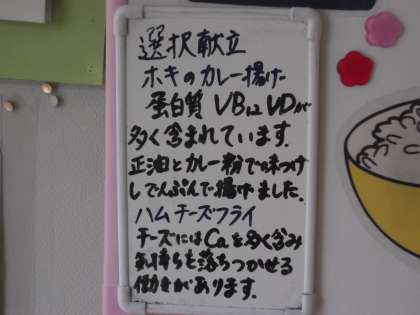 選択献立
ホキのカレー揚げ
蛋白質 VB12 VDが
多く含まれています.
正油とカレー粉で味つけ
しでんぷんで揚げました.
ハムチーズフライ
チーズにはCaを多く含み
気持ちを落ちつかせる
働きがあります.